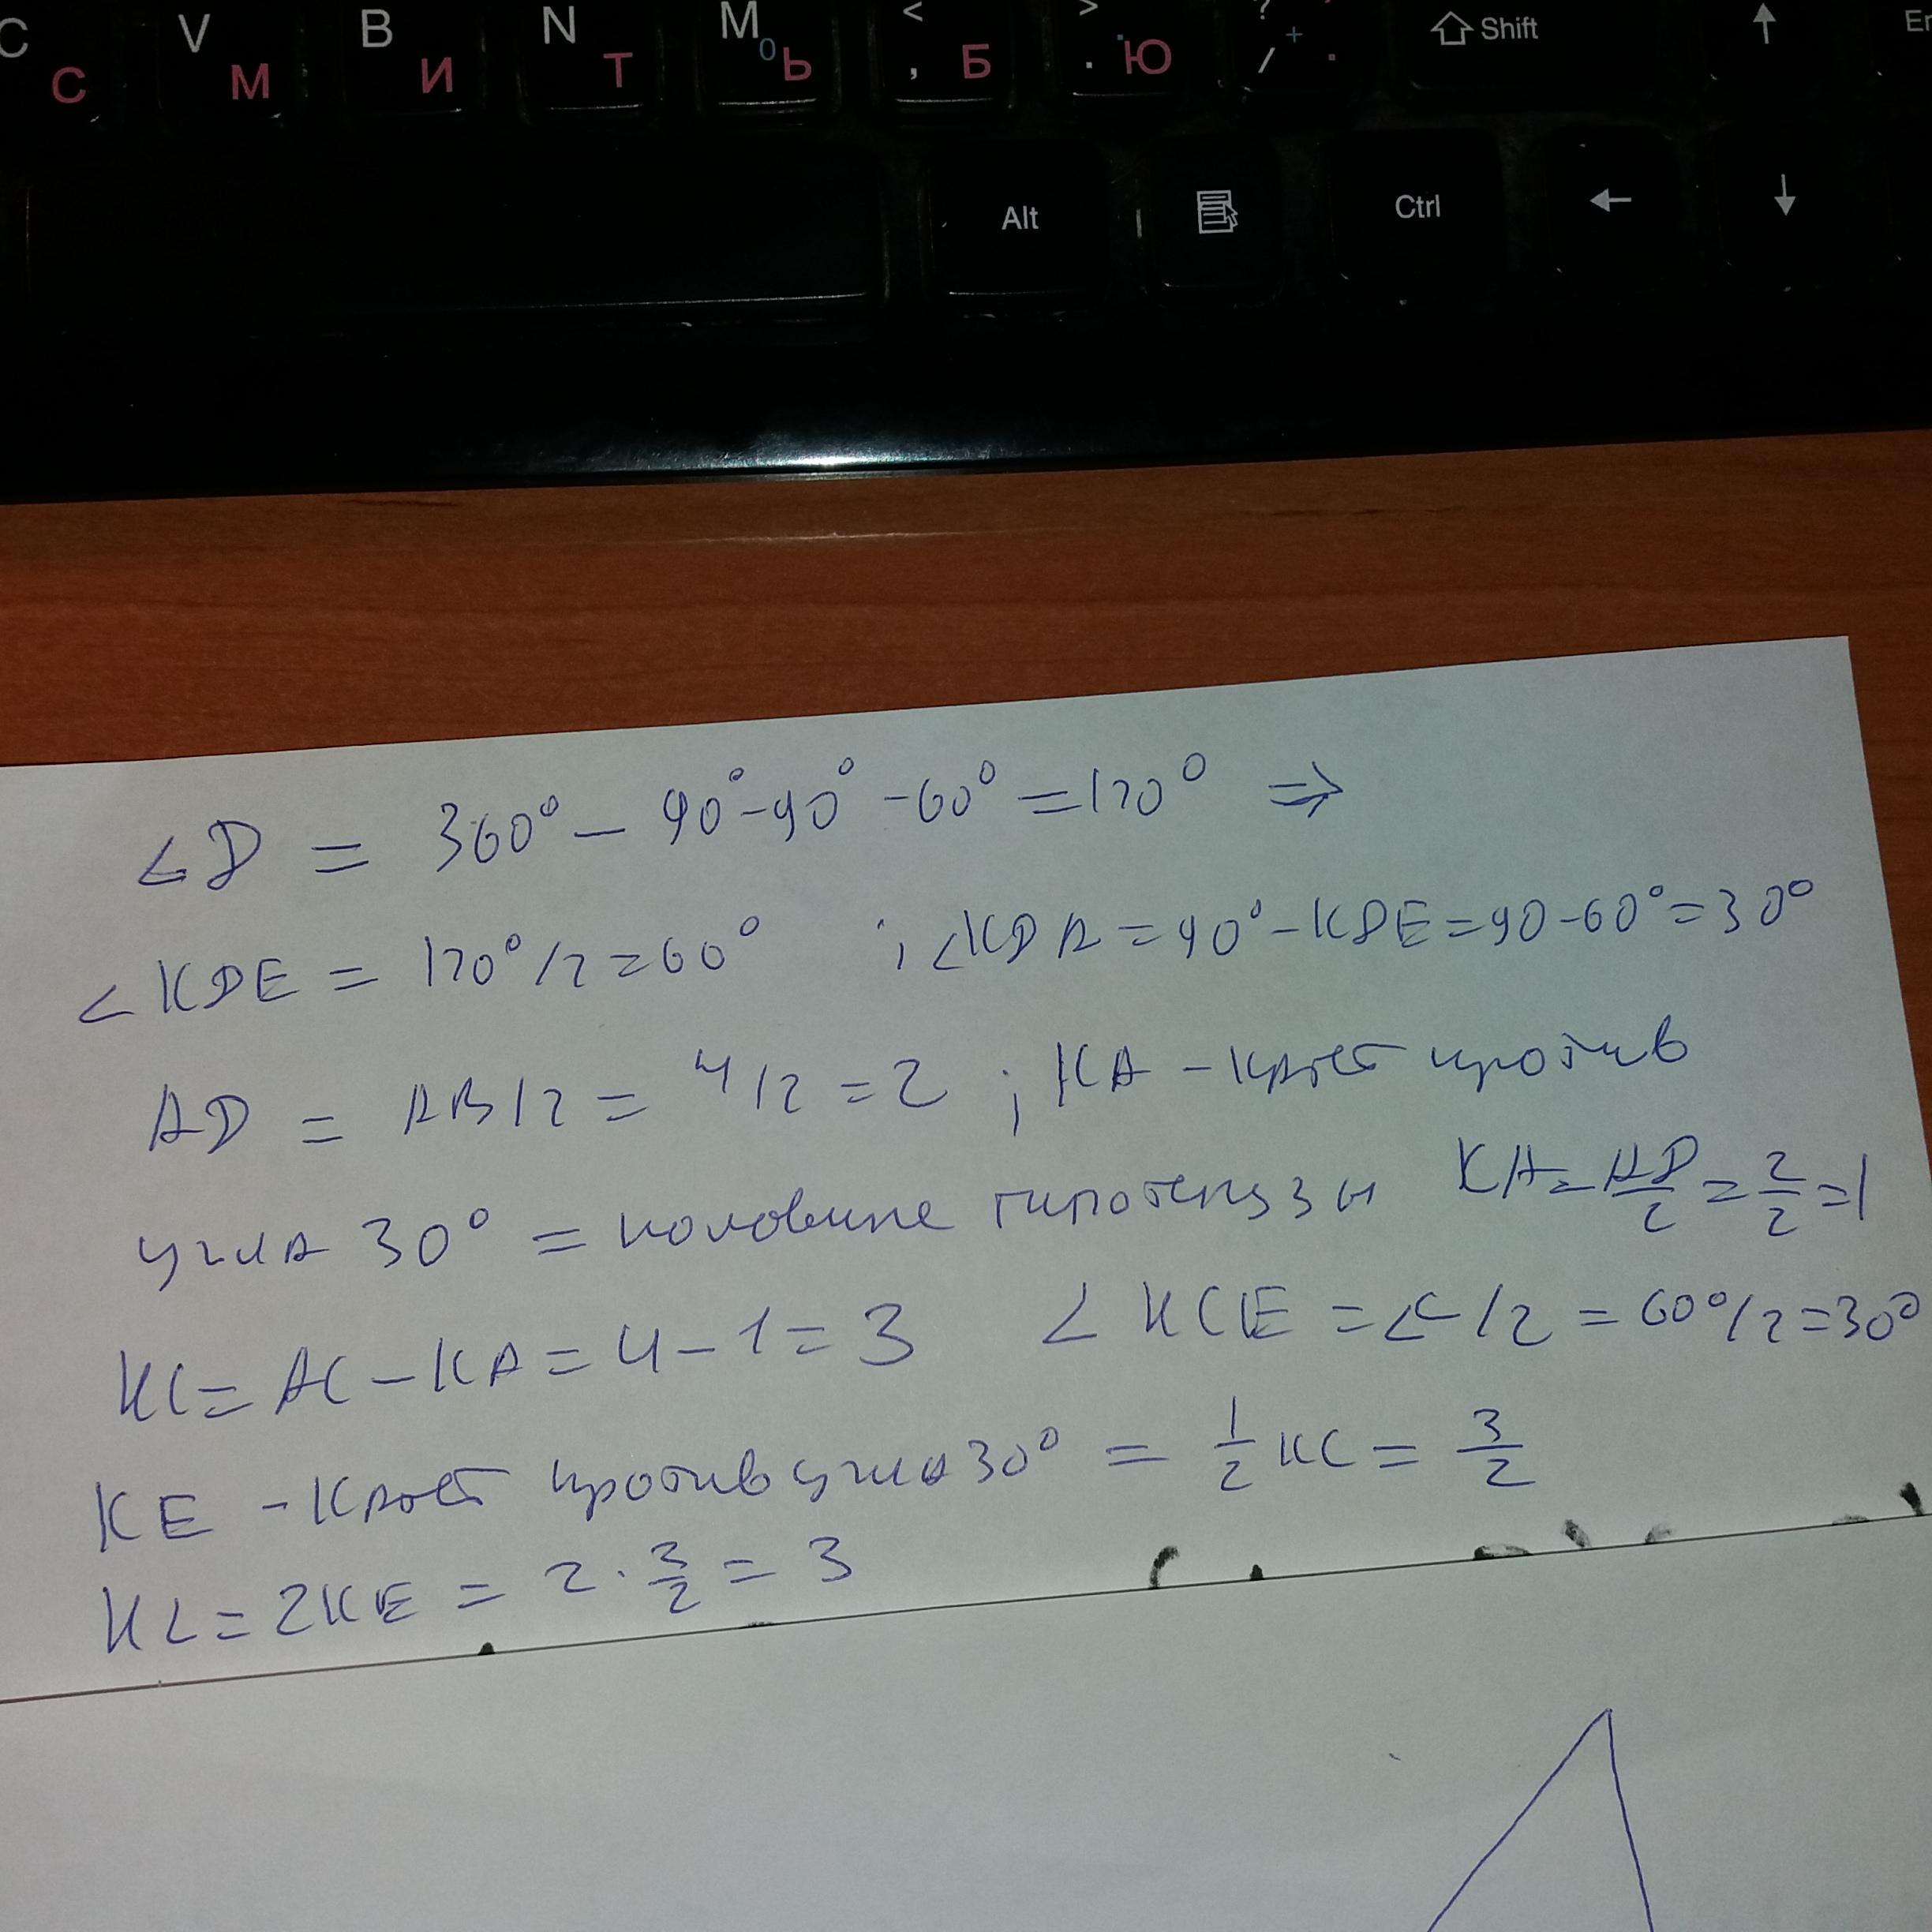 C V B N M < > ? Shift ↑
С М И Т 0 Ь , Б . Ю / + .
Alt Ctrl ← ↓
∠D = 360° - 90° - 90° - 60° = 120° ⇒
∠KDE = 120°/2 = 60° ; ∠KDA = 90° - KDE = 90 - 60° = 30°
AD = AB/2 = 4/2 = 2 ; KA - катет против
угла 30° = половине гипотенузы KA = AD/2 = 2/2 = 1
KC = AC - KA = 4 - 1 = 3 ∠KCE = ∠C/2 = 60°/2 = 30°
KE - катет против угла 30° = 1/2 KC = 3/2
KL = 2KE = 2 · 3/2 = 3